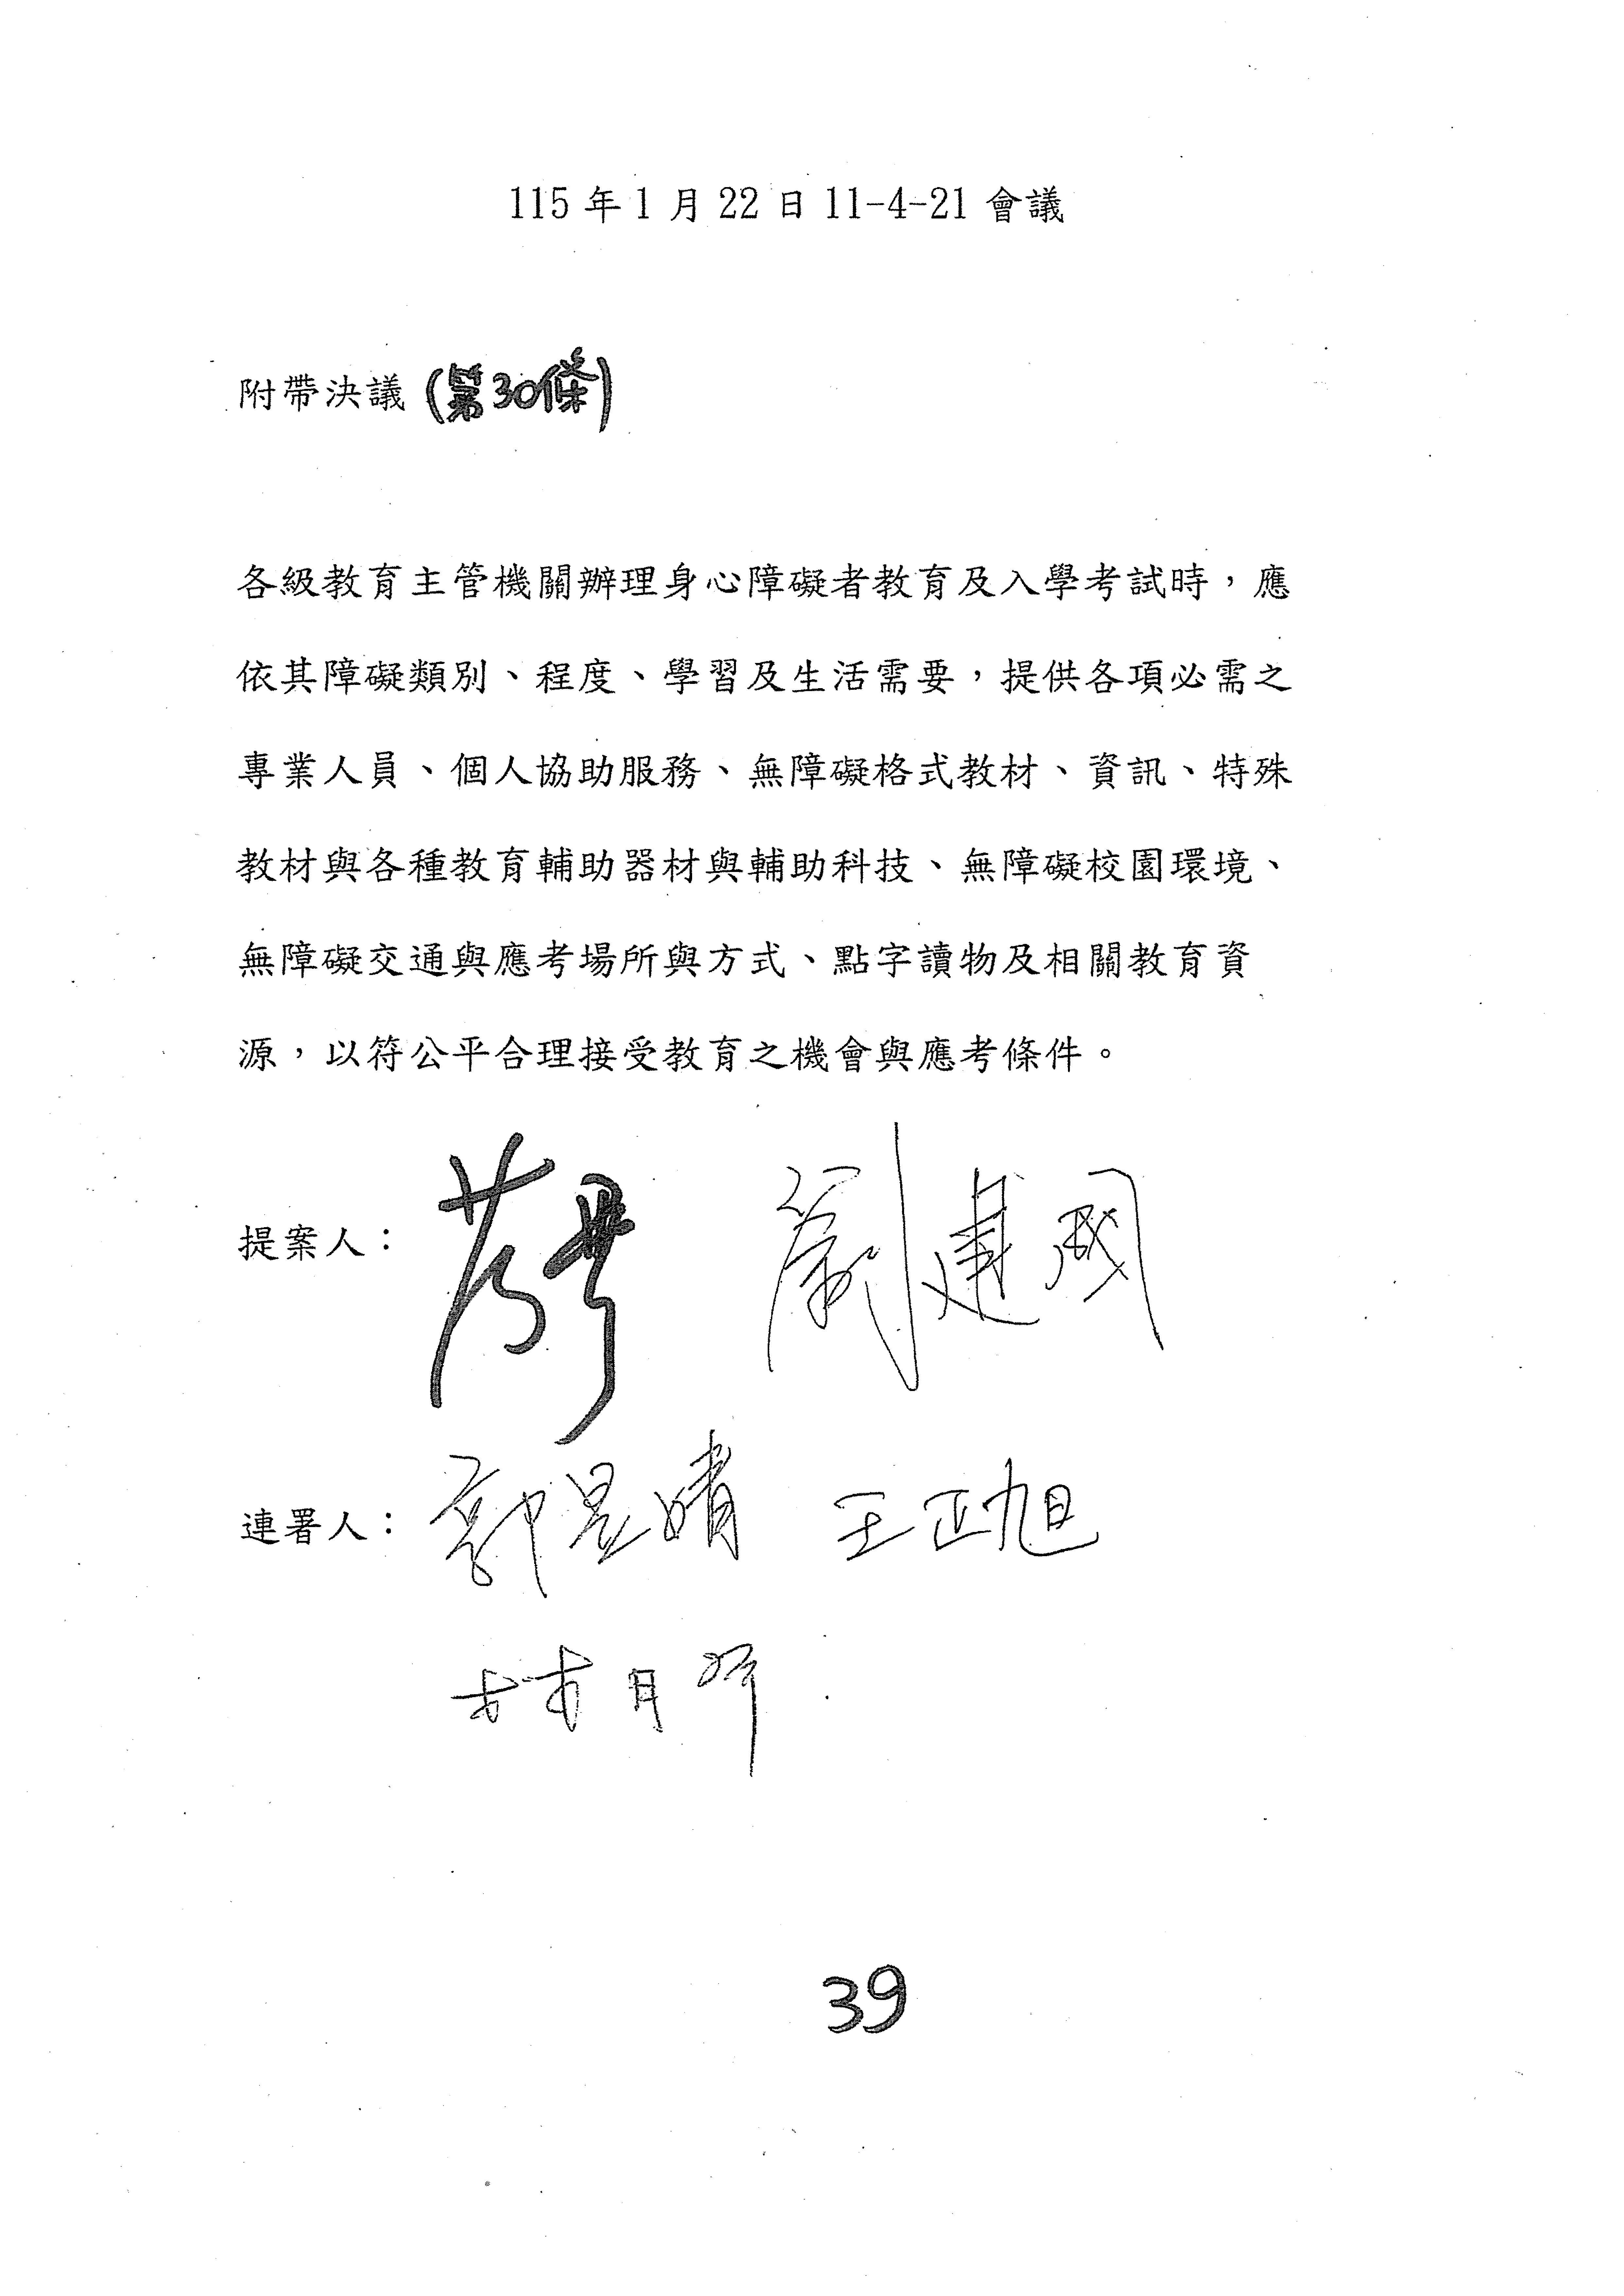 115年1月22日11-4-21會議
附帶決議(第30條)
各級教育主管機關辦理身心障礙者教育及入學考試時，應
依其障礙類別、程度、學習及生活需要，提供各項必需之
專業人員、個人協助服務、無障礙格式教材、資訊、特殊
教材與各種教育輔助器材與輔助科技、無障礙校園環境、
無障礙交通與應考場所與方式、點字讀物及相關教育資
源，以符公平合理接受教育之機會與應考條件。
提案人： 劉建國
連署人：郭昱晴 王正旭
林月琴
39